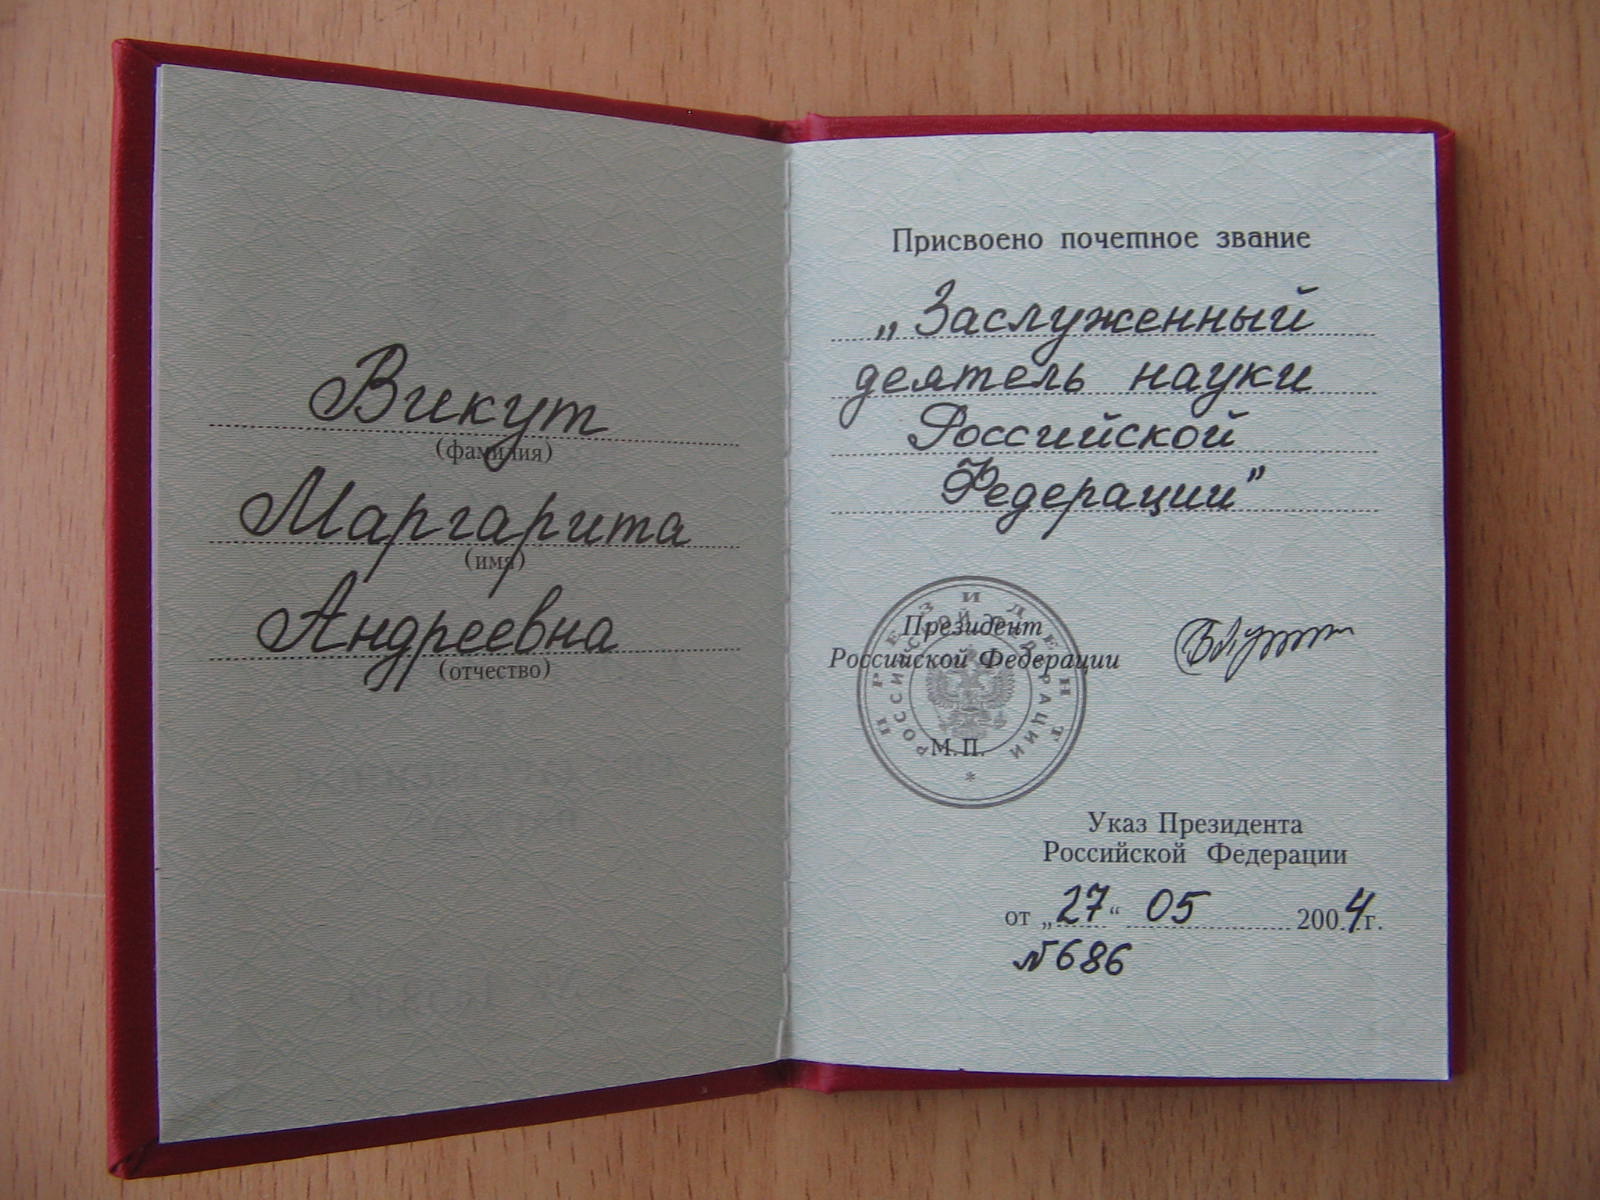 Викут
(фамилия)
Маргарита
(имя)
Андреевна
(отчество)
Присвоено почетное звание
„Заслуженный
деятель науки
Российской
Федерации”
ПРЕЗИДЕНТ
РОССИЙСКОЙ ФЕДЕРАЦИИ
*
Президент
Российской Федерации
М.П.
Указ Президента
Российской Федерации
от „27“ 05 2004г.
№686